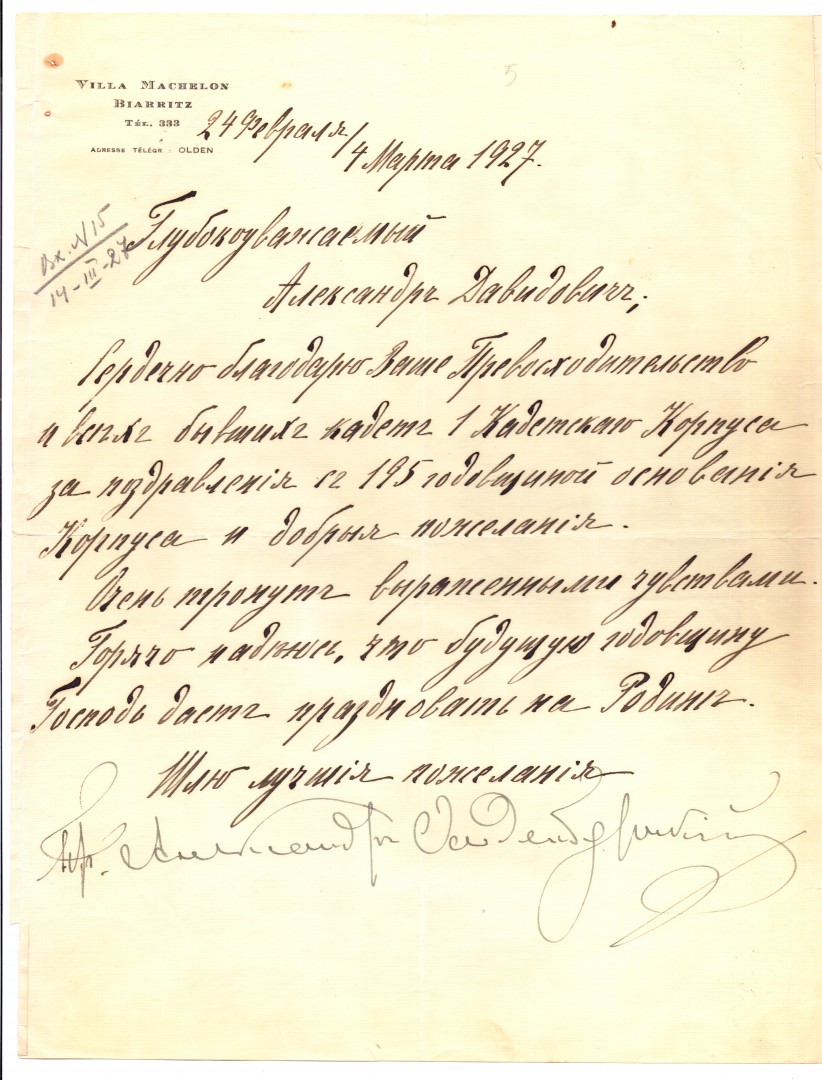 5
VILLA MACHELON
BIARRITZ
TÉL. 333
ADRESSE TÉLÉGR : OLDEN
24 Февраля/
4 Марта 1927.
Вх. N 15
14-III-27
Глубокоуважаемый
Александръ Давидовичъ,
Сердечно благодарю Ваше Превосходительство
и всѣхъ бывшихъ кадетъ 1 Кадетскаго Корпуса
за поздравленія съ 195 годовщиной основанія
Корпуса и добрыя пожеланія.
Очень тронутъ выраженными чувствами.
Горячо надѣюсь, что будущую годовщину
Господь дастъ праздновать на Родинѣ.
Шлю лучшія пожеланія
Пр. Александръ Ольденбургскій